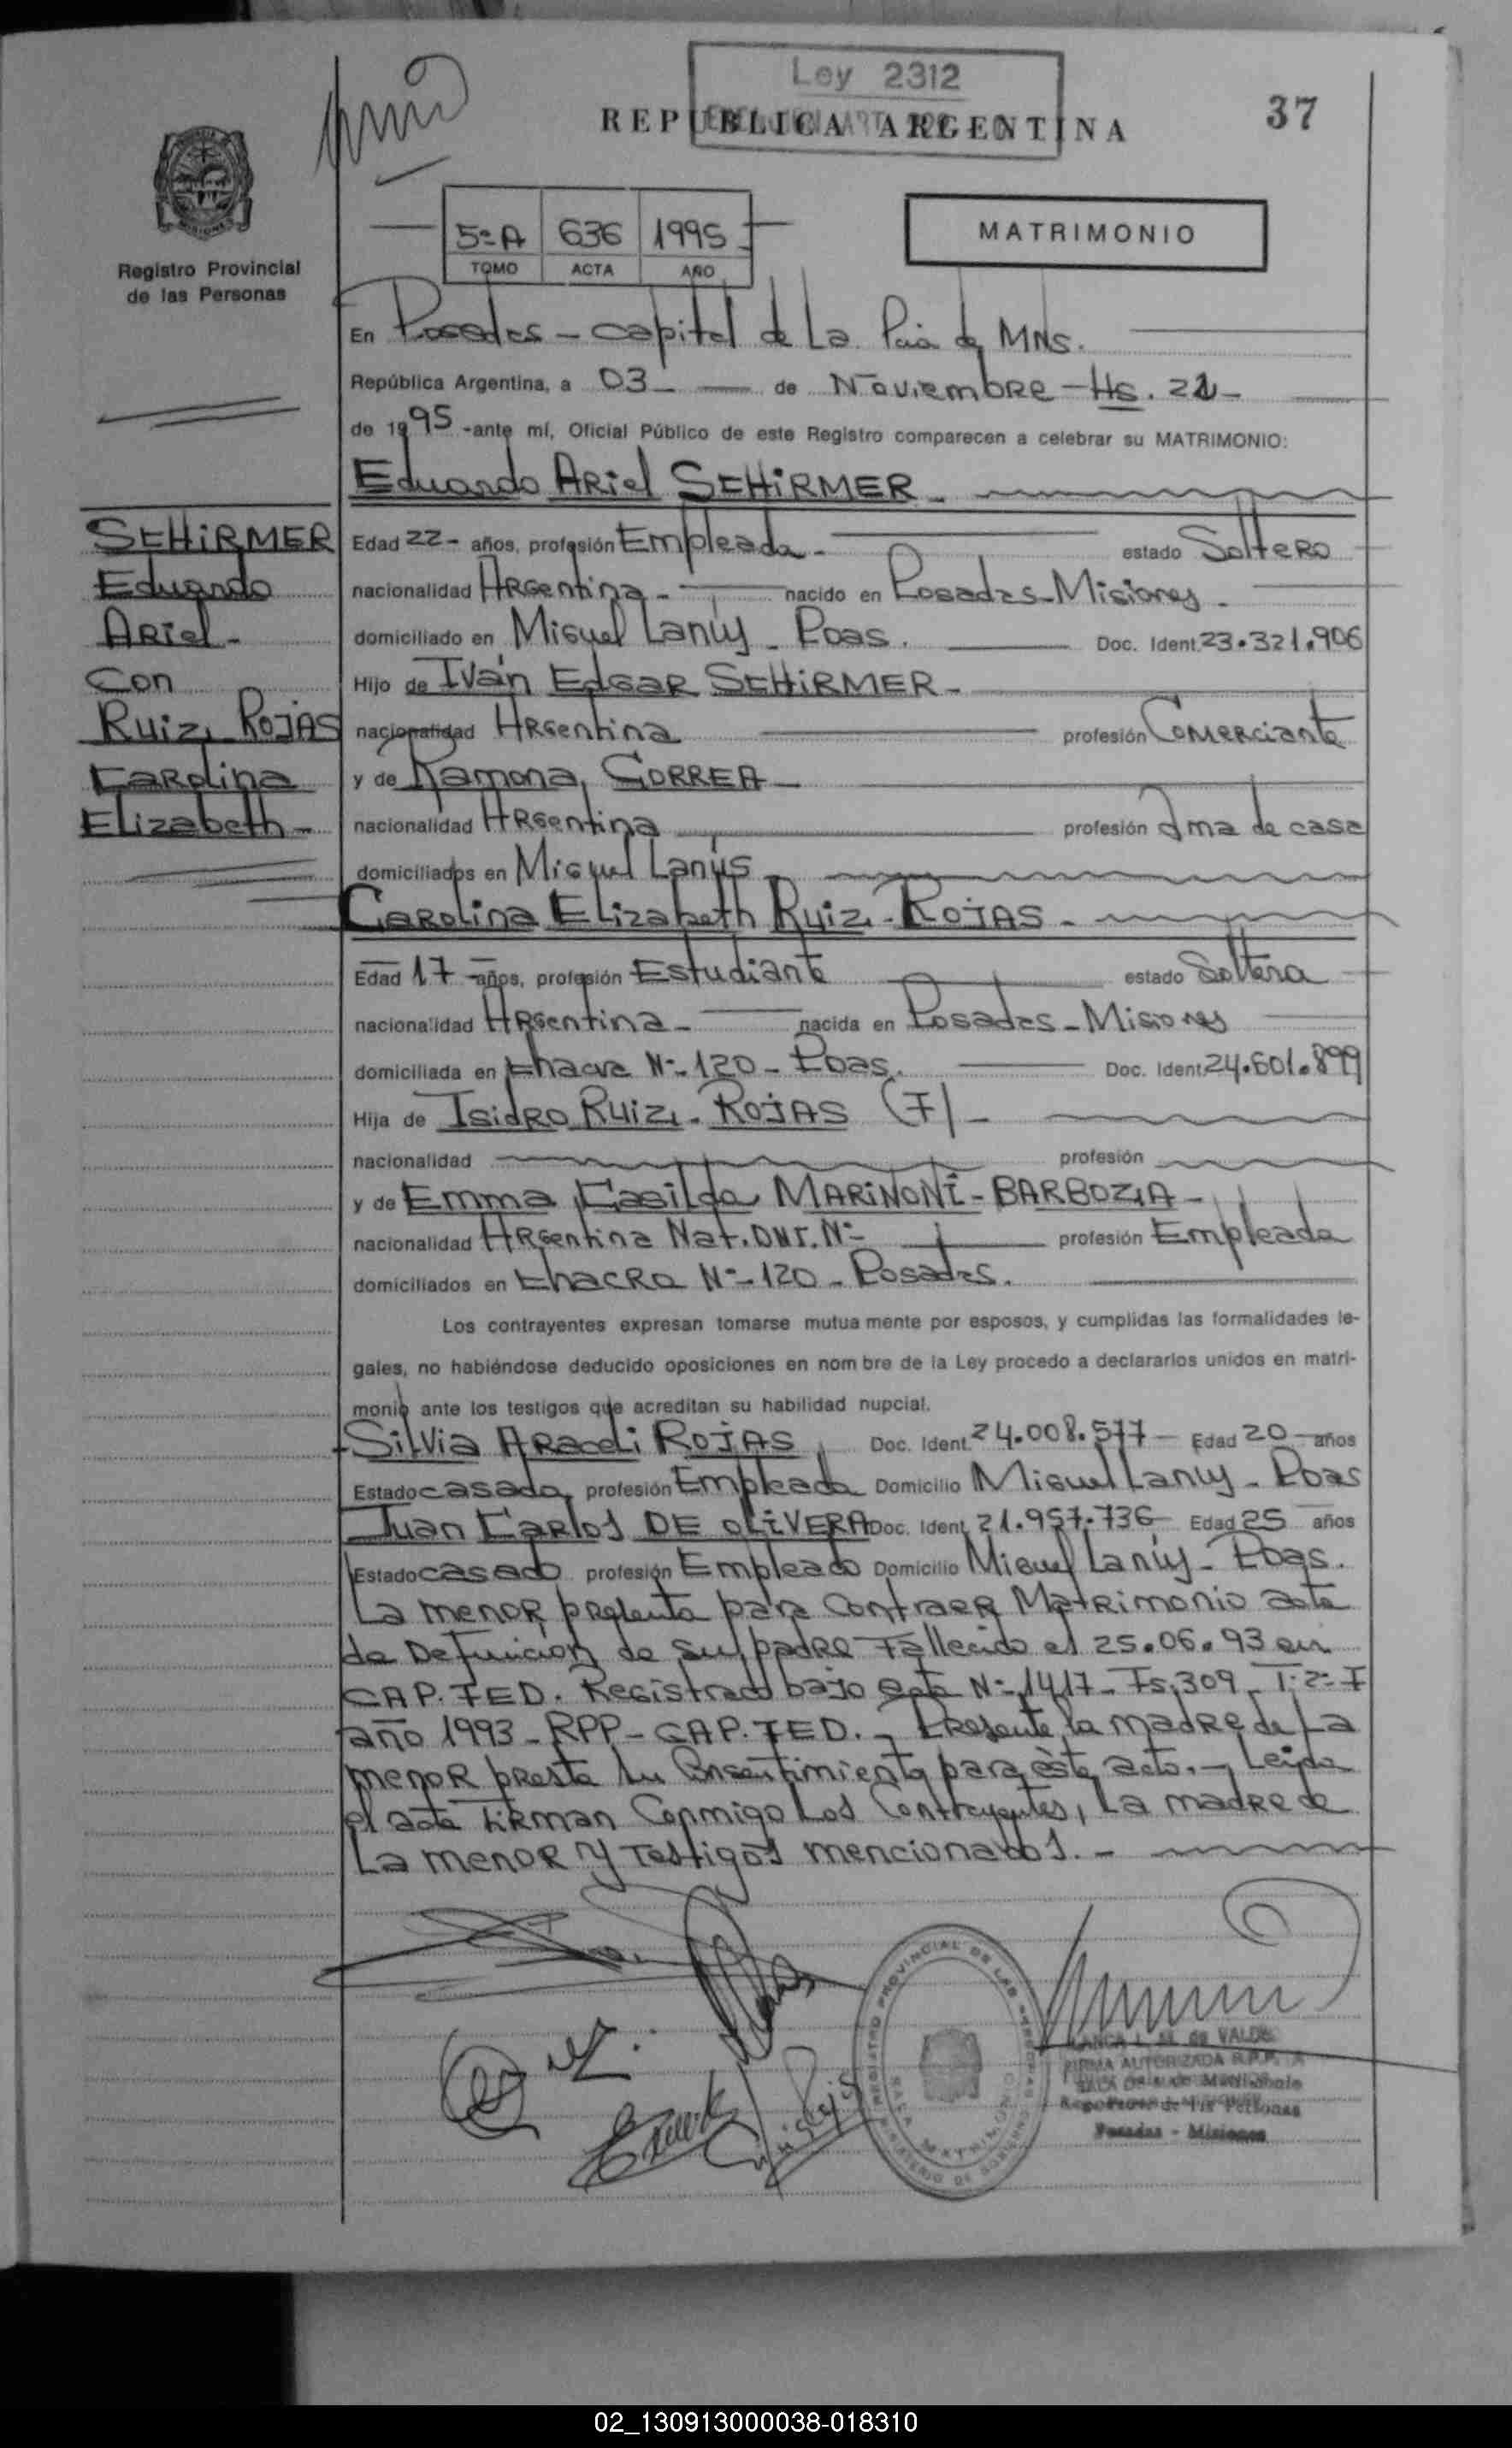 Ley 2312
REPUBLICA ARGENTINA
37
5º A 636 1995
TOMO ACTA AÑO
MATRIMONIO
Registro Provincial
de las Personas
En Posadas - Capital de La Pcia de MNS.
República Argentina, a 03 - de Noviembre - Hs. 21 -
de 1995 - ante mí, Oficial Público de este Registro comparecen a celebrar su MATRIMONIO:
Eduardo Ariel SCHiRMER -
SCHiRMER
Eduardo
Ariel -
Con
Ruiz, ROJAS
Carolina
Elizabeth -
Edad 22 - años, profesión Empleada - estado Soltero
nacionalidad Argentina - nacido en Posadas - Misiones -
domiciliado en Miguel Lanús - Pdas. Doc. Ident. 23.321.906
Hijo de Iván Edgar SCHiRMER -
nacionalidad Argentina profesión Comerciante
y de Ramona, CORREA
nacionalidad Argentina profesión Ama de casa
domiciliados en Miguel Lanús
Carolina Elizabeth Ruiz - ROJAS -
Edad 17 - años, profesión Estudiante estado Soltera
nacionalidad Argentina - nacida en Posadas - Misiones
domiciliada en Chacra Nº 120 - Pdas. Doc. Ident. 24.601.899
Hija de Isidro Ruiz - ROJAS (F) -
nacionalidad profesión
y de Emma Casilda MARiNONi - BARBOZA -
nacionalidad Argentina Nat. DNI. Nº - profesión Empleada
domiciliados en Chacra Nº - 120 - Posadas.
Los contrayentes expresan tomarse mutua mente por esposos, y cumplidas las formalidades le-
gales, no habiéndose deducido oposiciones en nom bre de la Ley procedo a declararlos unidos en matri-
monio ante los testigos que acreditan su habilidad nupcial.
Silvia Araceli ROJAS Doc. Ident. 24.008.577 - Edad 20 - años
Estado casada, profesión Empleada Domicilio Miguel Lanús - Pdas
Juan Carlos DE OLiVERA Doc. Ident. 21.957.736 Edad 25 años
Estado casado profesión Empleado Domicilio Miguel Lanús - Pdas.
La menor presenta para contraer Matrimonio acta
de Defunción de su padre Fallecido el 25.06.93 en
CAP. FED. Registrado bajo acta Nº 1417 - Fs, 309 - T: 2º F
año 1993 - RPP - CAP. FED. - Presente la madre de La
menor presta su Consentimiento para éste acto. - Leída
el acta Firman Conmigo Los Contrayentes, La madre de
La menor y Testigos mencionados. -
REGISTRO PROVINCIAL DE LAS PERSONAS
MINISTERIO DE GOBIERNO
SALA MATRIMONIO
de VALDE
FIRMA AUTORIZADA R.P.P.
Posadas - Misiones
02_130913000038-018310